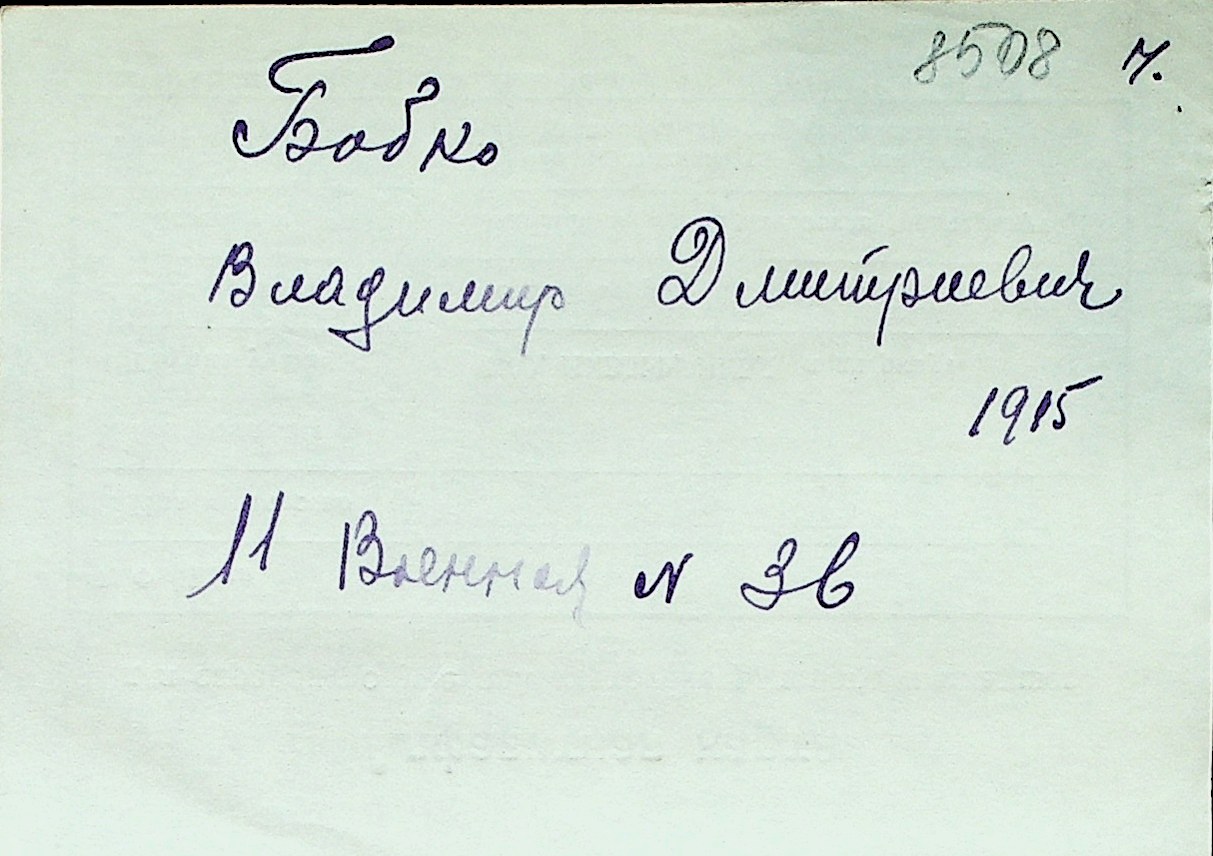 8508 ч.
Бобко
Владимир Дмитриевич
1915
11 Военная N 36